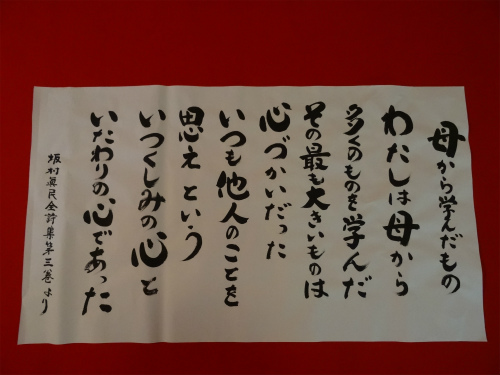 母から学んだもの
わたしは母から
多くのものを学んだ
その最も大きいものは
心づかいだった
いつも他人のことを
思えという
いつくしみの心と
いたわりの心であった
坂村眞民全詩集第三巻より